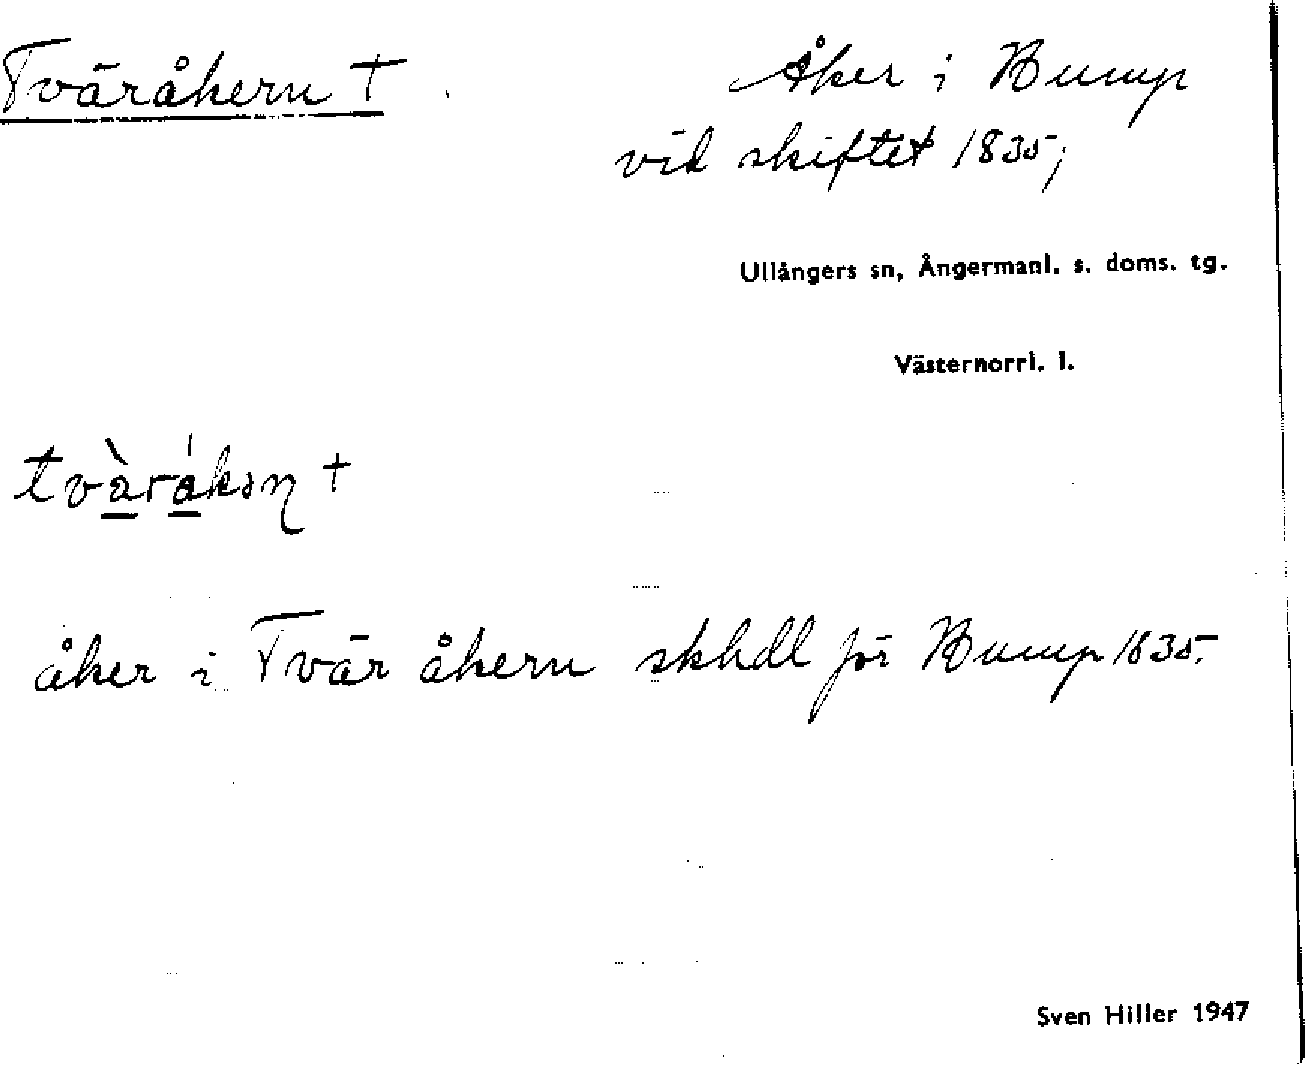 Tväråkern †
Åker i Bump
vid skiftet 1835;
Ullångers sn, Ångermanl. s. doms. tg.
Västernorrl. l.
åker i Tvär åkern skhdl för Bump 1835.
Sven Hiller 1947